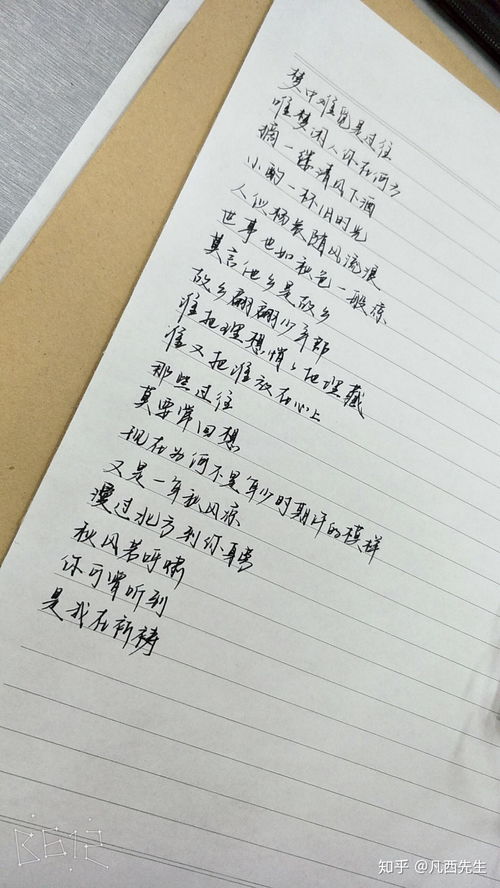 梦中难觅是过往
唯梦闲人你在何方
摘一缕清风下酒
小酌一杯旧时光
人似杨花随风流浪
世事也如秋色一般凉
莫言他乡是故乡
故乡翩翩少年郎
谁把理想悄悄地埋藏
谁又把谁放在心上
那些过往
莫要常回想
现在为何不是年少时期许的模样
又是一年秋风凉
漫过北方到你耳旁
秋风若呼啸
你可曾听到
是我在祈祷
知乎 @凡西先生